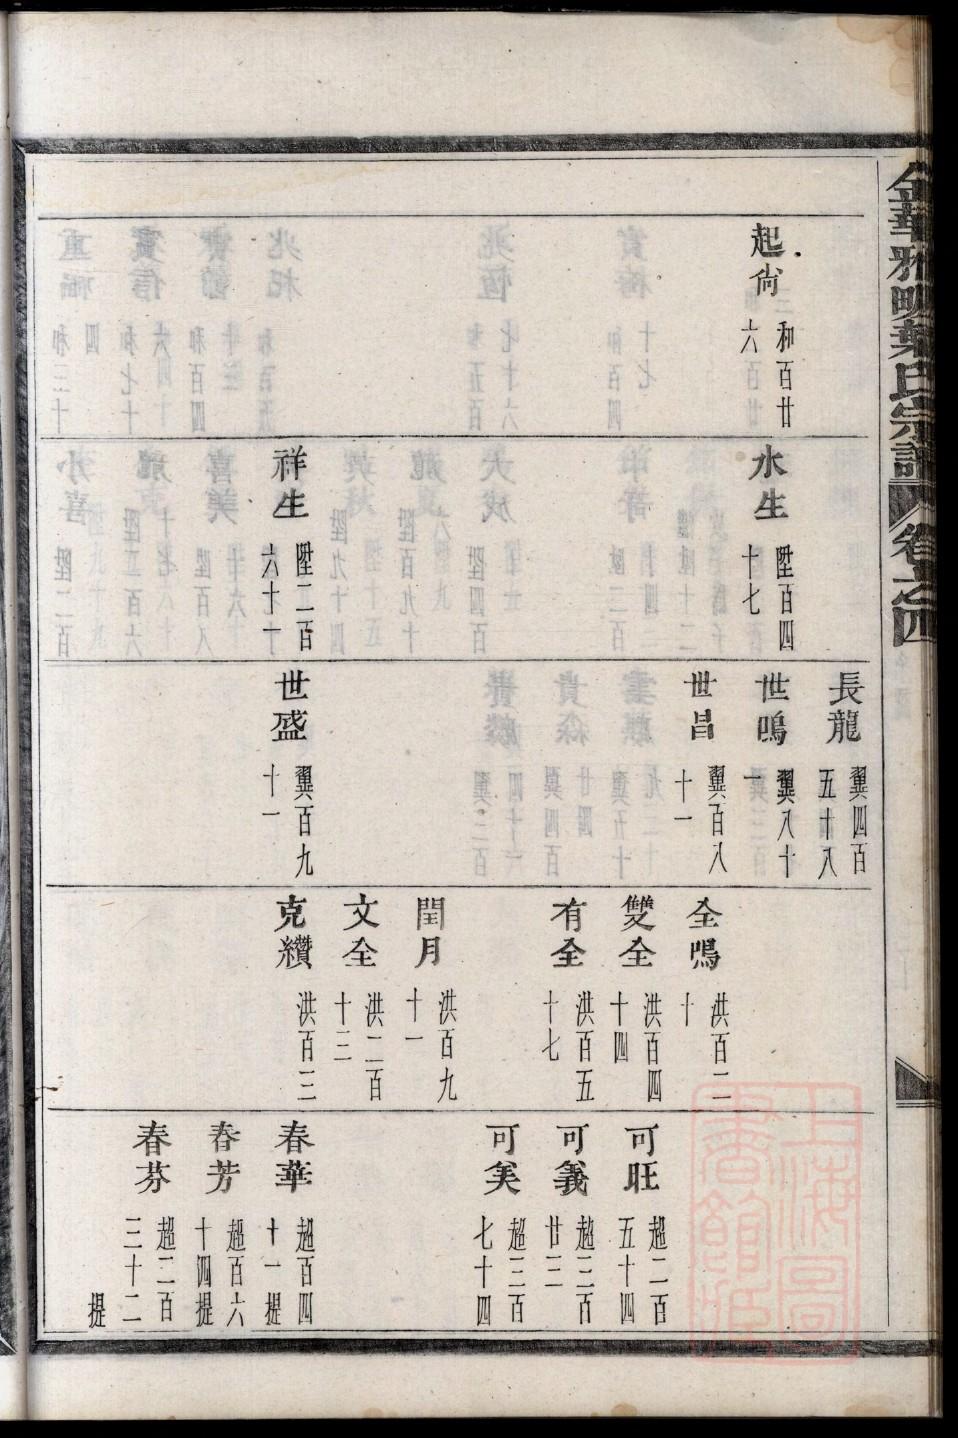 金華雅明葉氏宗譜 卷之四
起尙 和百廿六
水生 陞百四十七
祥生 陞二百六十七
長龍 翼四百五十八
世鳴 翼八十一
世昌 翼百八十一
世盛 翼百九十一
全鳴 洪百二十
雙全 洪百四十四
有全 洪百五十七
閏月 洪百九十一
文全 洪二百十三
克纘 洪百三
可旺 超二百五十四
可義 超三百廿三
可美 超三百七十四
春華 超百四十一提
春芳 超百六十四提
春芬 超二百三十二提
上海圖書館藏